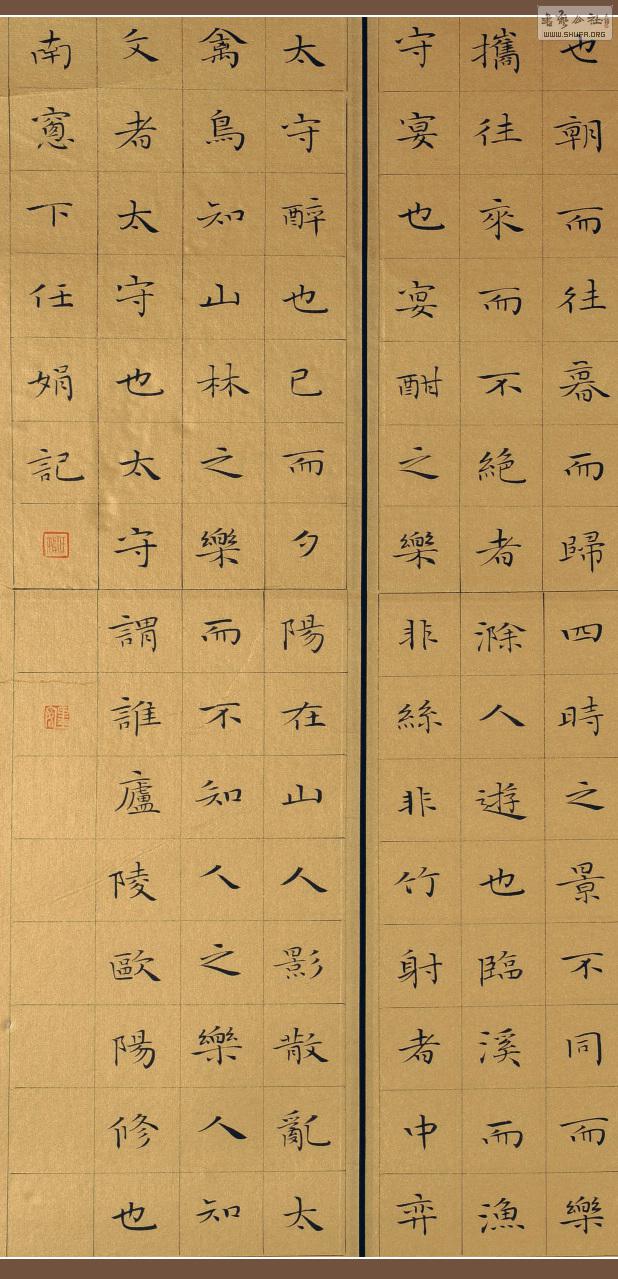 也朝而往暮而歸四時之景不同而樂
攜往來而不絕者滁人遊也臨溪而漁
守宴也宴酣之樂非絲非竹射者中弈
太守醉也已而夕陽在山人影散亂太
禽鳥知山林之樂而不知人之樂人知
文者太守也太守謂誰廬陵歐陽修也
南窻下任娟記
書藝公社
WWW.SHUFA.ORG